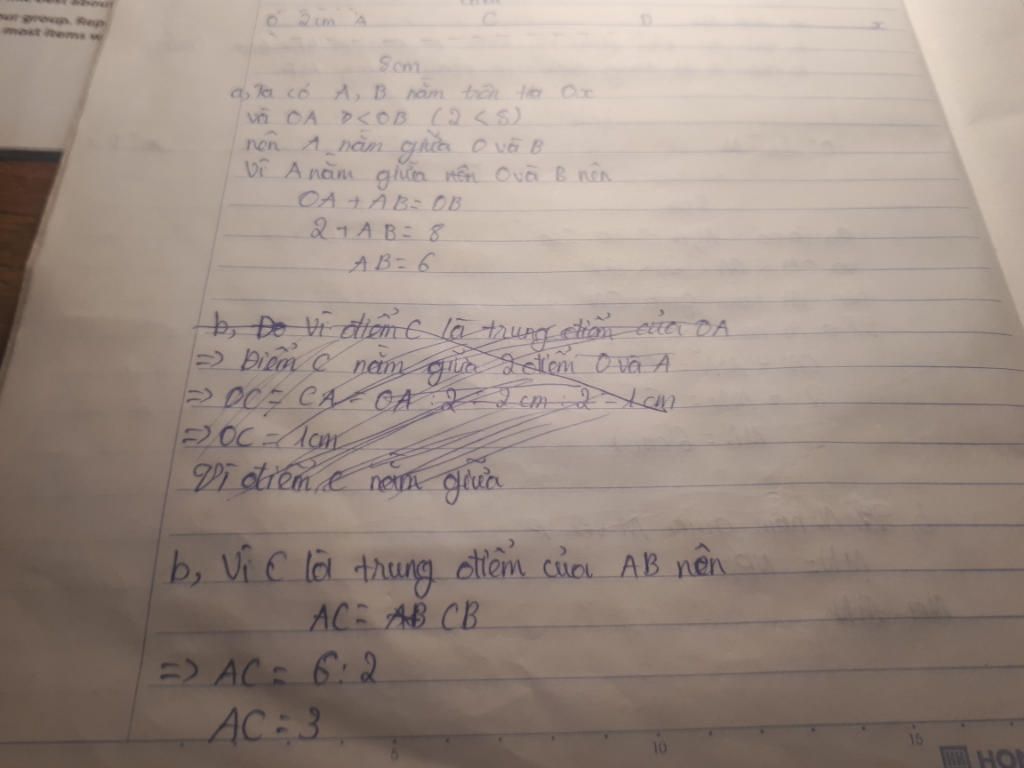 out group. Rep
most items w
O 2cm A C B x
8cm
a, Ta có A, B nằm trên tia Ox
và OA < OB (2 < 8)
nên A nằm giữa O và B
Vì A nằm giữa nên O và B nên
OA + AB = OB
2 + AB = 8
AB = 6
b, Do Vì điểm C là trung điểm của OA
=> Điểm C nằm giữa 2 điểm O và A
=> OC = CA = OA : 2 = 2cm : 2 = 1cm
=> OC = 1cm
Vì điểm C nằm giữa
b, Vì C là trung điểm của AB nên
AC = AB CB
=> AC = 6 : 2
AC = 3
5 10 15
HON